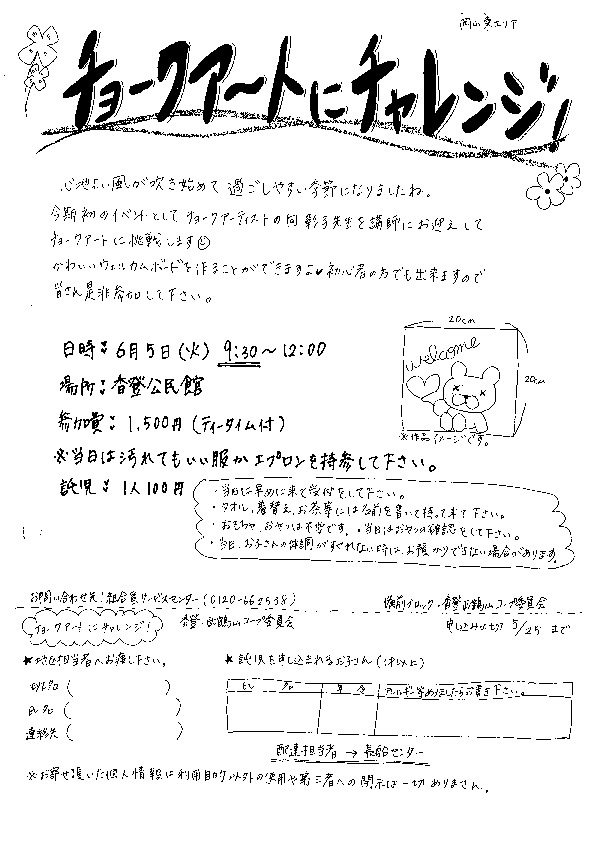 岡山東エリア
チョークアートにチャレンジ!
心地よい風が吹き始めて過ごしやすい季節になりましたね。
今期初のイベントとしてチョークアーティストの向 彰子先生を講師にお迎えして
チョークアートに挑戦します
かわいいウェルカムボードを作ることができますよ♥初心者の方でも出来ますので
皆さん是非参加して下さい。
日時:6月5日(火) 9:30~12:00
場所:香登公民館
参加費:1,500円(ティータイム付)
※当日は汚れてもいい服かエプロンを持参して下さい。
託児:1人100円
20cm
welcome
20cm
※作品イメージです。
・当日は早めに来て受付をして下さい。
・タオル、着替え、お茶等には名前を書いて持って来て下さい。
・おもちゃ、おやつは不要です。・当日はおやつの確認をして下さい。
・当日、お子さんの体調がすぐれない時は、お預かりできない場合があります。
お問い合わせ先:組合員サービスセンター(0120-662538)
備前ブロック・香登 鶴山コープ委員会
チョークアートにチャレンジ!
香登・鶴山コープ委員会
申し込み〆切 5/25 まで
★地区担当者へお渡し下さい。
★託児を申し込まれるお子さん(1才以上)
( )
氏名( )
連絡先( )
氏 名
年 令
アレルギー等ありましたらお書き下さい。
配達担当者→長船センター
※お寄せ頂いた個人情報は利用目的以外の使用や第三者への開示は一切ありません。